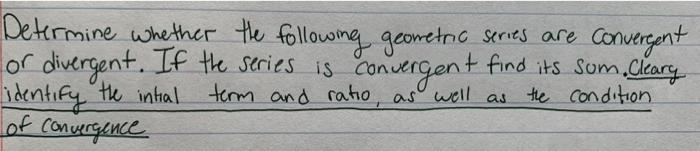 Determine whether the following geometric series are convergent
or divergent. If the series is convergent find its sum. Cleary
identify the intial term and ratio, as well as the condition
of convergence